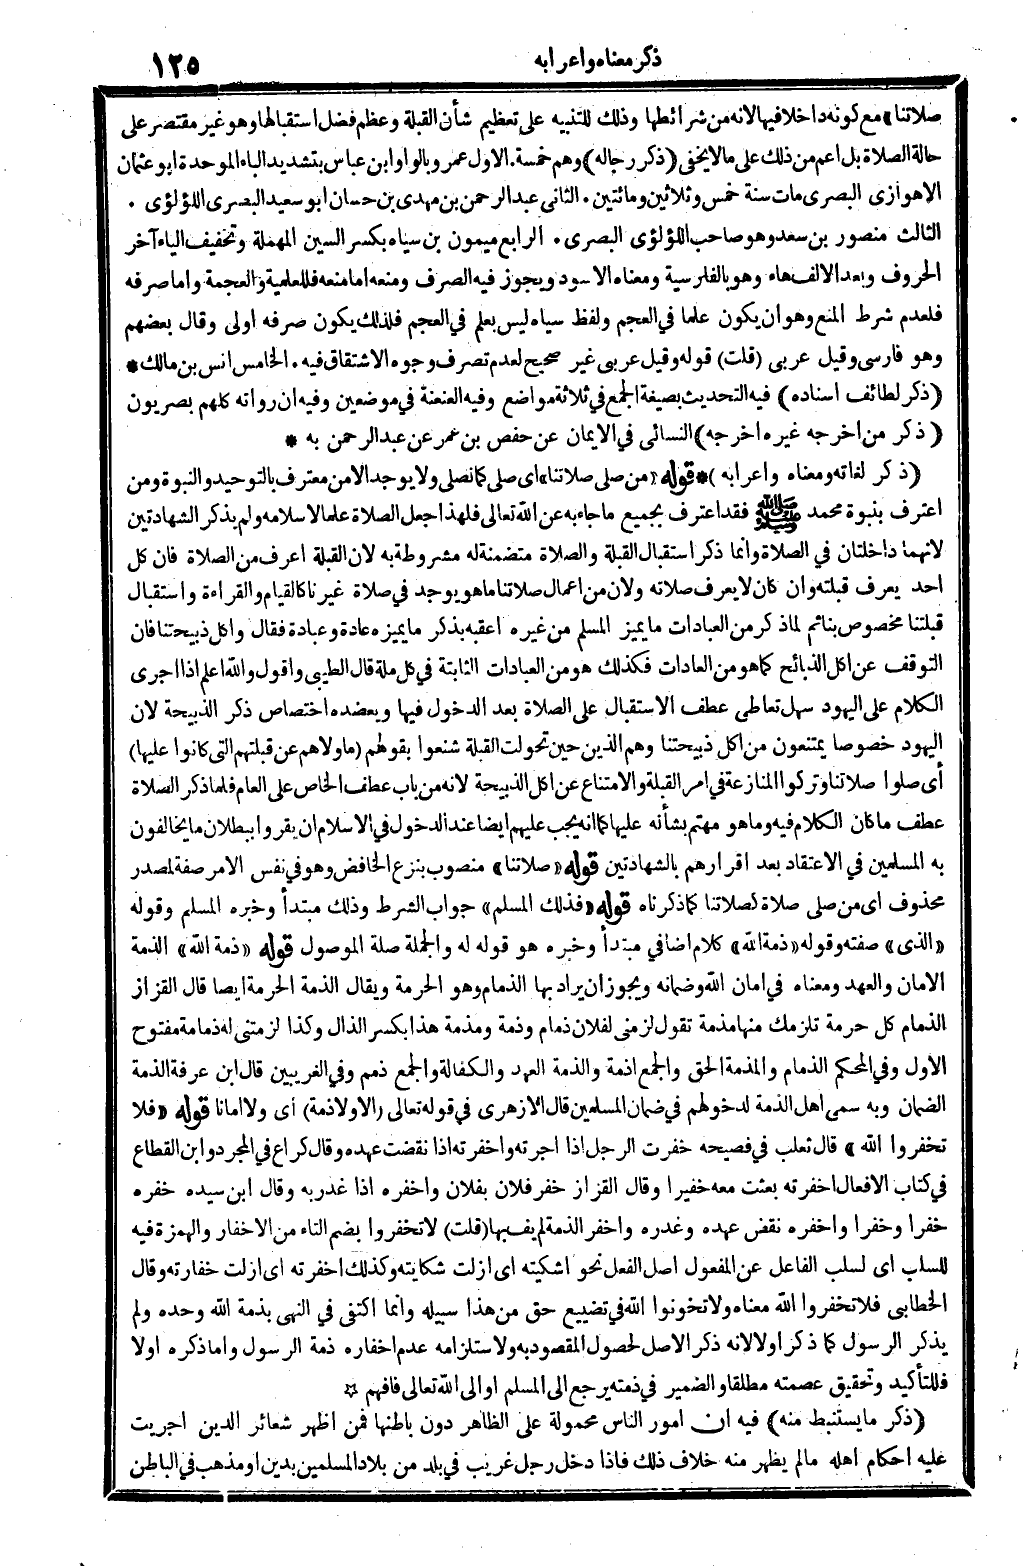 ذكر معناه واعرابه
١٢٥
صلاتنا» مع كونه داخلا فيها لانه من شرائطها وذلك للتنبيه على تعظيم شأن القبلة وعظم فضل استقبالها وهو غير مقتصر على
حالة الصلاة بل اعم من ذلك على مالا يخفى (ذكر رجاله) وهم خمسة. الاول عمرو بالواو ابن عباس بتشديد الباء الموحدة ابو عثمان
الاهوازى البصرى مات سنة خمس وثلاثين ومائتين. الثانى عبد الرحمن بن مهدى بن حسان ابو سعيد البصرى اللؤلؤى .
الثالث منصور بن سعد وهو صاحب اللؤلؤى البصرى. الرابع ميمون بن سياه بكسر السين المهملة وتخفيف الياء آخر
الحروف وبعد الالف هاء وهو بالفارسية ومعناه الاسود ويجوز فيه الصرف ومنعه اما منعه فللعلمية والعجمة واما صرفه
فلعدم شرط المنع وهو ان يكون علما في العجم ولفظ سياه ليس بعلم في العجم فلذلك يكون صرفه اولى وقال بعضهم
وهو فارسى وقيل عربى (قلت) قوله وقيل عربى غير صحيح لعدم تصرف وجوه الاشتقاق فيه. الخامس انس بن مالك *
(ذكر لطائف اسناده) فيه التحديث بصيغة الجمع في ثلاثة مواضع وفيه العنعنة في موضعين وفيه ان رواته كلهم بصريون
(ذكر من اخرجه غيره اخرجه) النسائى في الايمان عن حفص بن عمر عن عبد الرحمن به *
(ذكر لغاته ومعناه واعرابه)* قوله «من صلى صلاتنا» اى صلى كما نصلى ولا يوجد الا من معترف بالتوحيد والنبوة ومن
اعترف بنبوة محمد ﷺ فقد اعترف بجميع ما جاء به عن الله تعالى فلهذا جعل الصلاة علما لاسلامه ولم يذكر الشهادتين
لانهما داخلتان في الصلاة وانما ذكر استقبال القبلة والصلاة متضمنة له مشروطة به لان القبلة اعرف من الصلاة فان كل
احد يعرف قبلته وان كان لا يعرف صلاته ولان من اعمال صلاتنا ما هو يوجد في صلاة غيرنا كالقيام والقراءة واستقبال
قبلتنا مخصوص بنا ثم لما ذكر من العبادات ما يميز المسلم من غيره اعقبه بذكر ما يميزه عادة وعبادة فقال واكل ذبيحتنا فان
التوقف عن اكل الذبائح كما هو من العادات فكذلك هو من العبادات الثابتة في كل ملة قال الطيبى واقول والله اعلم اذا اجرى
الكلام على اليهود سهل تعاطى عطف الاستقبال على الصلاة بعد الدخول فيها ويعضده اختصاص ذكر الذبيحة لان
اليهود خصوصا يمتنعون من اكل ذبيحتنا وهم الذين حين تحولت القبلة شنعوا بقولهم (ماولاهم عن قبلتهم التى كانوا عليها)
أى صلوا صلاتنا وتركوا المنازعة في امر القبلة والامتناع عن اكل الذبيحة لانه من باب عطف الخاص على العام فلما ذكر الصلاة
عطف ما كان الكلام فيه وما هو مهتم بشأنه عليها كما انه يجب عليهم ايضا عند الدخول في الاسلام ان يقروا ببطلان ما يخالفون
به المسلمين في الاعتقاد بعد اقرارهم بالشهادتين قوله «صلاتنا» منصوب بنزع الخافض وهو في نفس الامر صفة لمصدر
محذوف اى من صلى صلاة كصلاتنا كما ذكرناه قوله «فذلك المسلم» جواب الشرط وذلك مبتدأ وخبره المسلم وقوله
«الذى» صفته وقوله «ذمة الله» كلام اضافي مبتدأ وخبره هو قوله له والجملة صلة الموصول قوله «ذمة الله» الذمة
الامان والعهد ومعناه في امان الله وضمانه ويجوز ان يراد بها الذمام وهو الحرمة ويقال الذمة الحرمة ايضا قال القزاز
الذمام كل حرمة تلزمك منها مذمة تقول لزمنى لفلان ذمام وذمة ومذمة هذا بكسر الذال وكذا لزمتنى له ذمامة مفتوح
الاول وفي المحكم الذمام والمذمة الحق والجمع اذمة والذمة العهد والكفالة والجمع ذمم وفي الغريبين قال ابن عرفة الذمة
الضمان وبه سمى اهل الذمة لدخولهم في ضمان المسلمين قال الازهرى في قوله تعالى (الا ولا ذمة) اى ولا امانا قوله «فلا
تخفروا الله» قال ثعلب في فصيحه خفرت الرجل اذا اجرته واخفرته اذا نقضت عهده وقال كراع في المجرد وابن القطاع
في كتاب الافعال اخفرته بعثت معه خفيرا وقال القزاز خفر فلان بفلان واخفره اذا غدر به وقال ابن سيده خفره
خفرا وخفرا واخفره نقض عهده وغدره واخفر الذمة لم يف بها (قلت) لا تخفروا بضم التاء من الاخفار والهمزة فيه
للسلب اى لسلب الفاعل عن المفعول اصل الفعل نحو اشكيته اى ازلت شكايته وكذلك اخفرته اى ازلت خفارته وقال
الخطابى فلا تخفروا الله معناه ولا تخونوا الله في تضييع حق من هذا سبيله وانما اكتفى في النهى بذمة الله وحده ولم
يذكر الرسول كما ذكر اولا لانه ذكر الاصل لحصول المقصود به ولاستلزامه عدم اخفاره ذمة الرسول واما ذكره اولا
فللتأكيد وتحقيق عصمته مطلقا والضمير في ذمته يرجع الى المسلم او الى الله تعالى فافهم ☆
(ذكر ما يستنبط منه) فيه ان امور الناس محمولة على الظاهر دون باطنها فمن اظهر شعائر الدين اجريت
عليه احكام اهله مالم يظهر منه خلاف ذلك فاذا دخل رجل غريب في بلد من بلاد المسلمين بدين او مذهب في الباطن